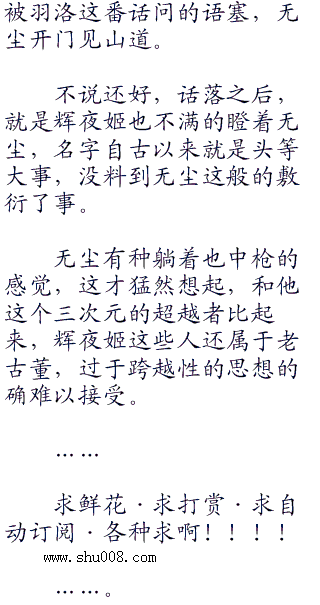 被羽洛这番话问的语塞，无
尘开门见山道。
不说还好，话落之后，
就是辉夜姬也不满的瞪着无
尘，名字自古以来就是头等
大事，没料到无尘这般的敷
衍了事。
无尘有种躺着也中枪的
感觉，这才猛然想起，和他
这个三次元的超越者比起
来，辉夜姬这些人还属于老
古董，过于跨越性的思想的
确难以接受。
……
求鲜花·求打赏·求自
动订阅·各种求啊！！！！
www.shu008.com
……。